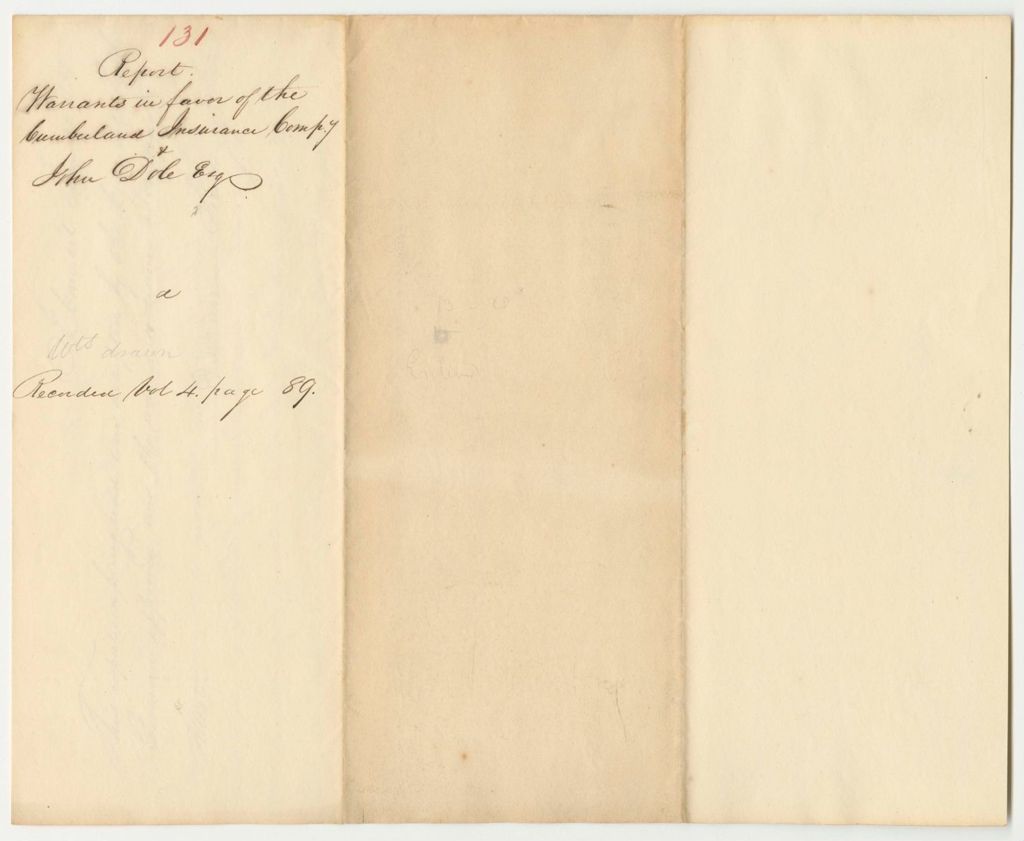 131
Report.
Warrants in favor of the
Cumberland Insurance Comp.y
&
John Dole Esq
a
Wts drawn
Recorded Vol 4. page 89.